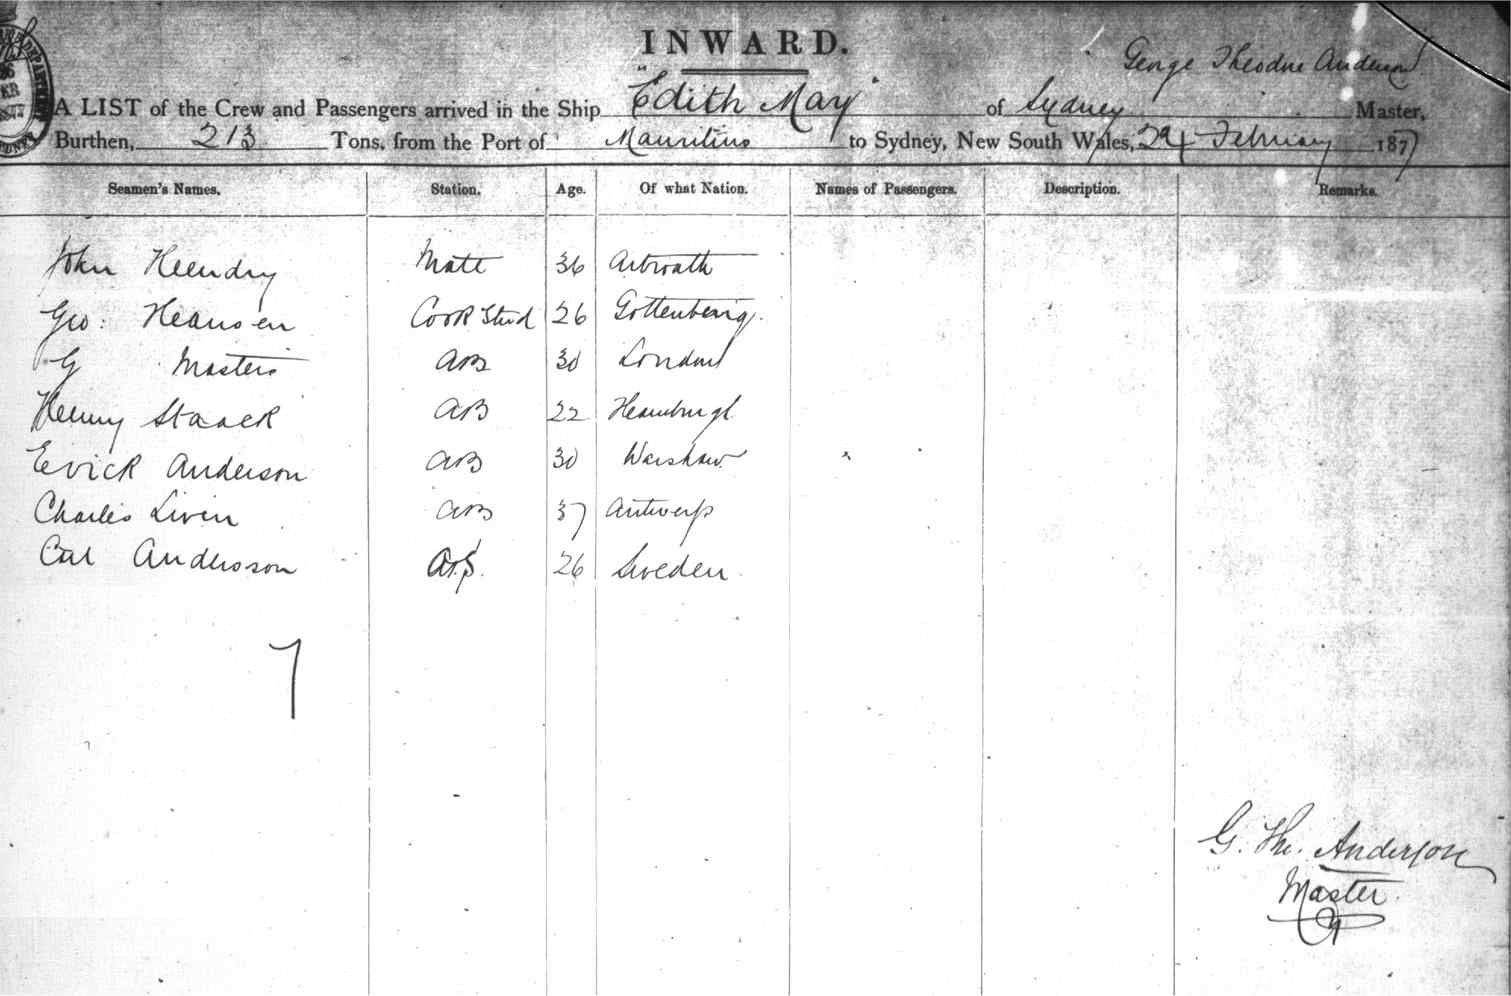 INWARD.
George Theodore Anderson
A LIST of the Crew and Passengers arrived in the Ship "Edith May" of Sydney Master,
Burthen, 213 Tons, from the Port of Mauritius to Sydney, New South Wales, 24 February 1877
Seamen's Names. Station. Age. Of what Nation. Names of Passengers. Description. Remarks.
John Heendry Mate 36 Arbroath
Geo: Heansen Cook Stwd 26 Gottenberg.
G Masters AB 30 London
Henry Staack AB 22 Heamburgh
Evick Anderson AB 30 Warshaw
Charles Liven AB 37 Antwerp
Carl Andersson O.S. 26 Sweden
7
G. The. Anderson
Master